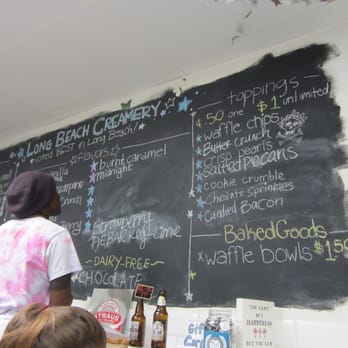 LONG BEACH CREAMERY
voted BEST in Long Beach!
flavors
burnt caramel
midnight
strawberry
-lime
DAIRY-FREE
CHOCOLATE
toppings
$.50 one $1 unlimited
waffle chips
Butter Crunch
crisp pearls
Salted pecans
cookie crumble
Chocolate Sprinkles
Candied Bacon
Baked Goods
waffle bowls $1.50
STRAUS
Gift
Card
YOU CAN'T
BUY
HAPPINESS
BUT YOU CAN